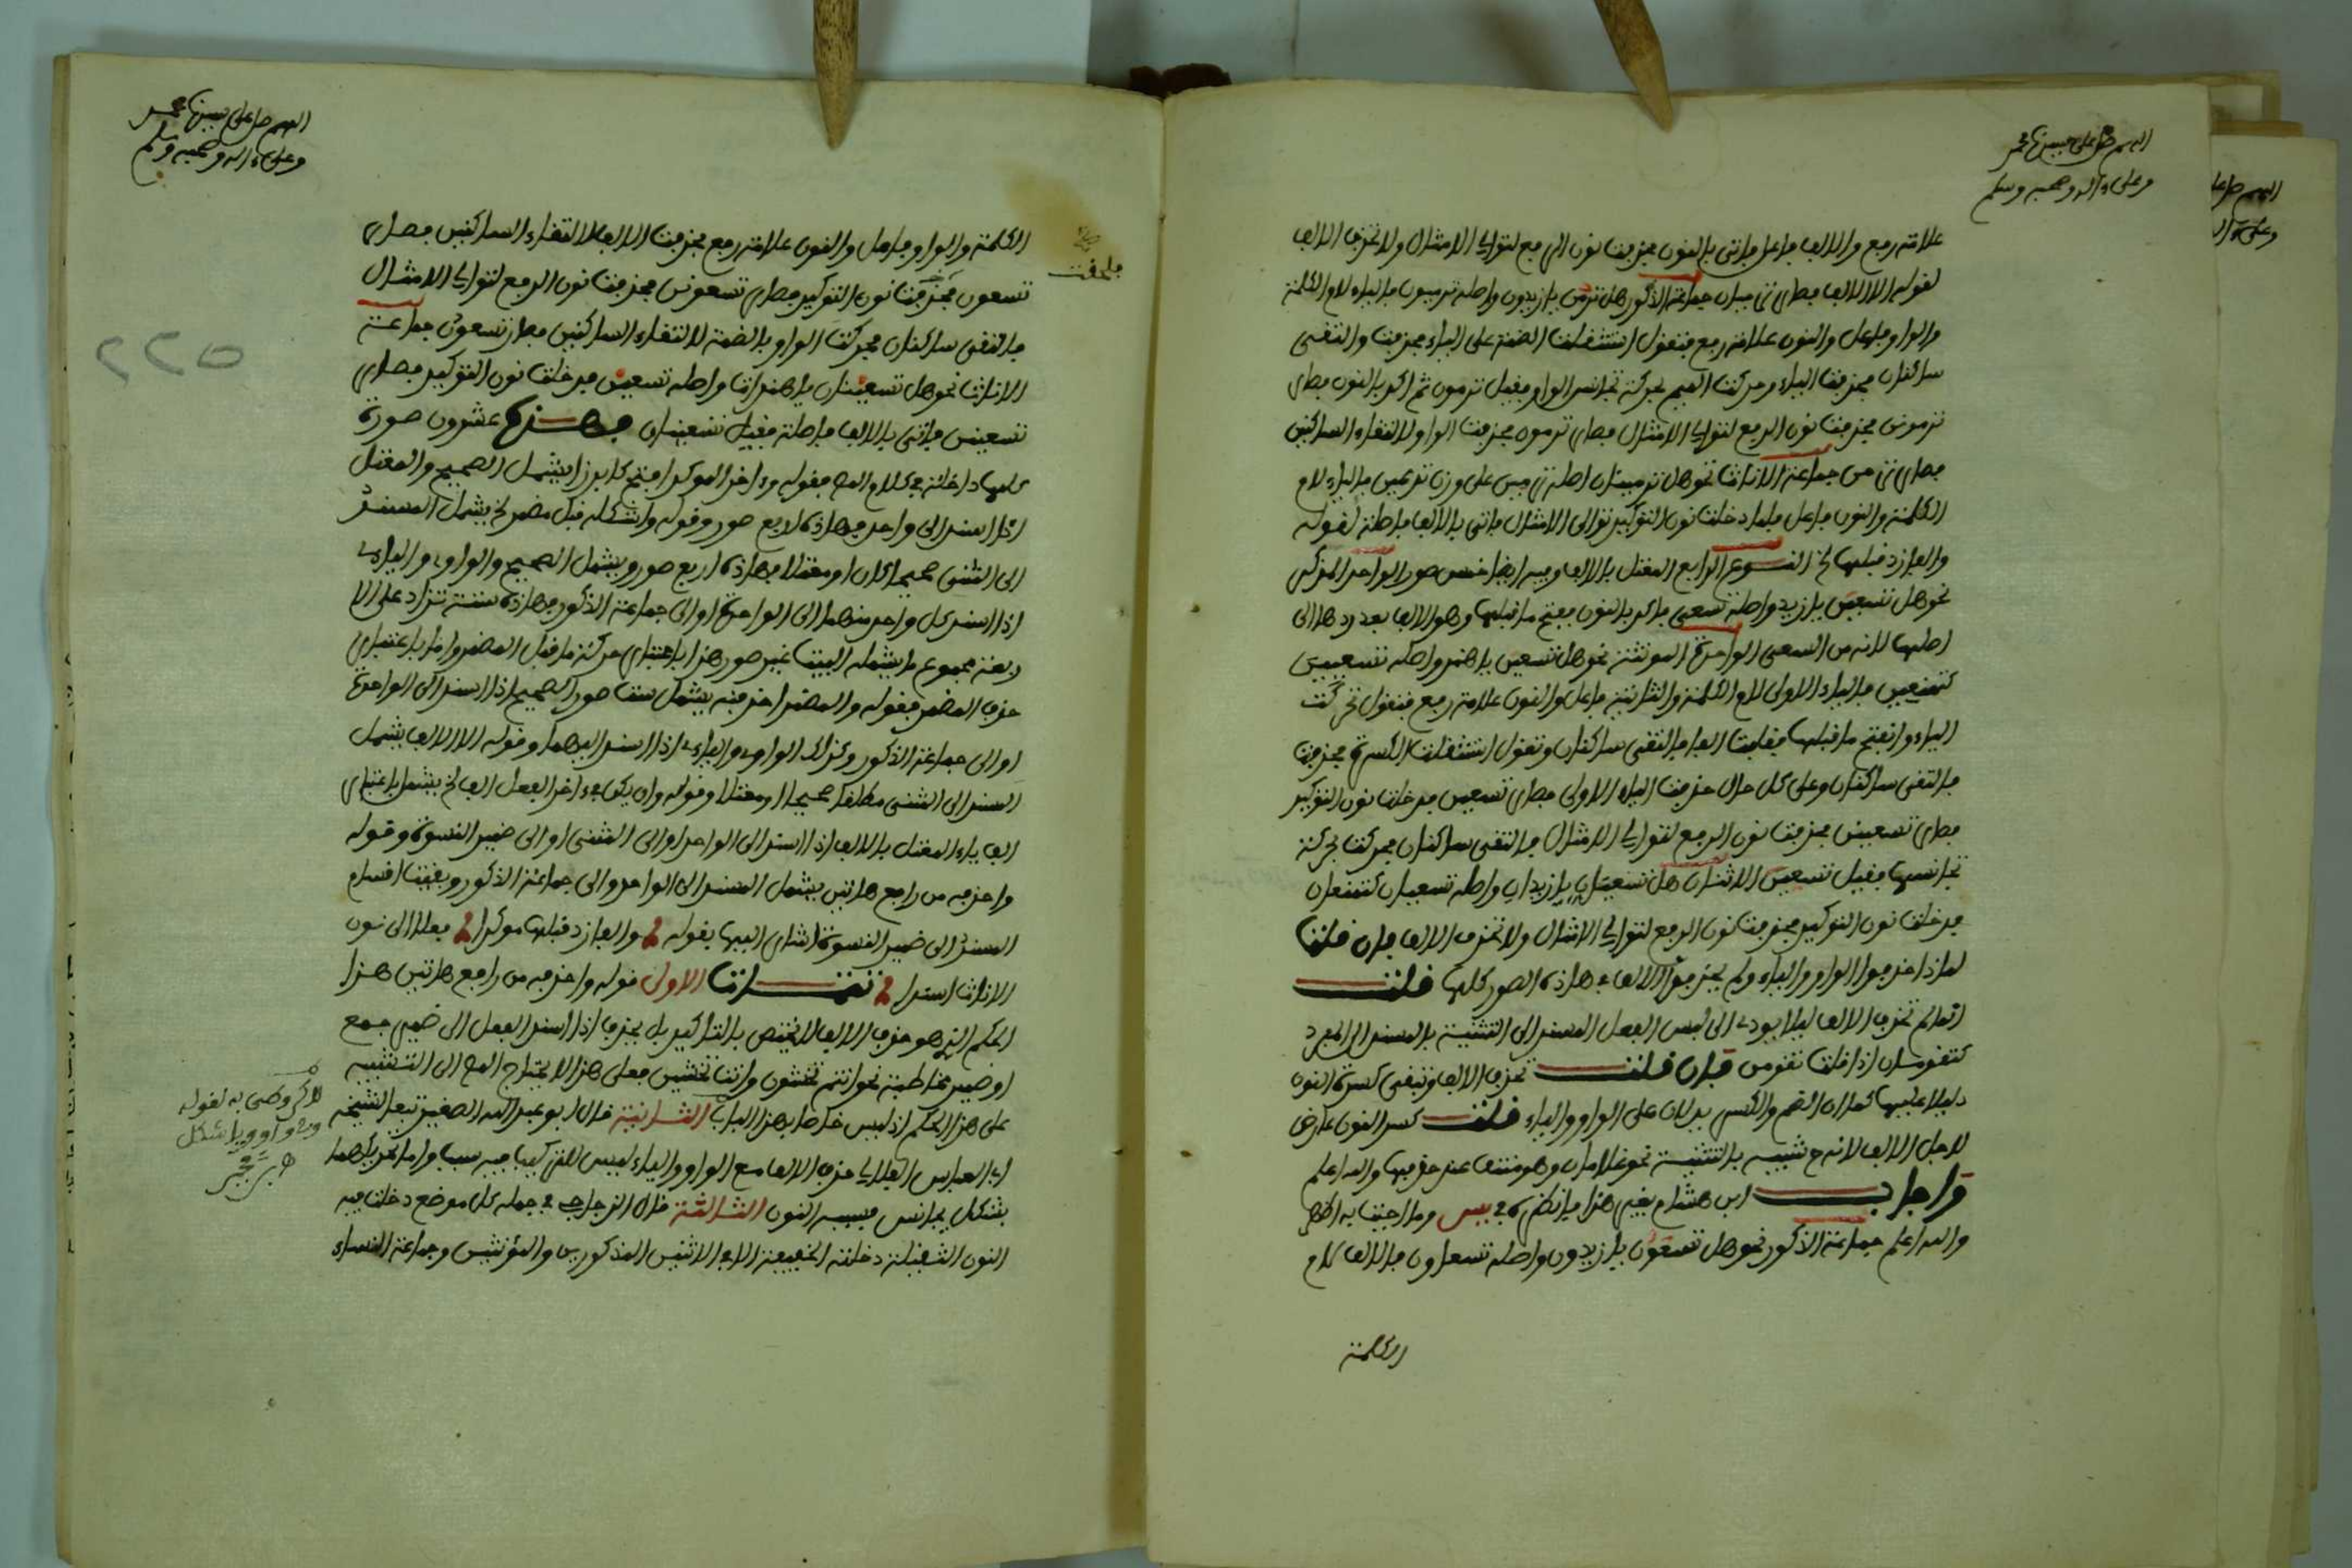 اللهم صل على سيدنا محمد
وعلى ءاله وصحبه وسلم
علامة رفع والالف فاعل فاتى بالنون فحذفت نون الرفع لتوالي الامثال ولا تحذف الالف
لقوله الا الالف فصار ترميان جماعة الذكور هل ترمن يا زيدون واصله ترميون فالياء لام الكلمة
والواو فاعل والنون علامة رفع فنقول استثقلت الضمة على الياء فحذفت والتقى
ساكنان فحذفت الياء وحركت الميم بحركة تجانس الواو فقيل ترمون ثم اكد بالنون فصار
ترمونن فحذفت نون الرفع لتوالي الامثال فصار ترمون فحذفت الواو لالتقاء الساكنين
فصار ترمن جماعة الاناث نحو هل ترمينان اصله ترمين على وزن تفعلن فالياء لام
الكلمة والنون فاعل فلما دخلت نون التوكيد توالى الامثال فاتى بالالف فاصلة لقوله
والفا زد قبلها الخ النوع الرابع المعتل بالالف وفيه ايضا خمس صور الواحد المذكر
نحو هل تسعين يا زيد واصله تسعى فاكد بالنون ففتح ما قبلها وهو الالف بعد ردها الى
اصلها لانه من السعي الواحدة المونثة نحو هل تسعين يا هند واصله تسعيين
كتمنعين فالياء الاولى لام الكلمة والثانية فاعل والنون علامة رفع فنقول تحركت
الياء وانفتح ما قبلها فقلبت الفا فالتقى ساكنان وتقول استثقلت الكسرة فحذفت
فالتقى ساكنان وعلى كل حال حذفت الياء الاولى فصار تسعين فدخلت نون التوكيد
فصار تسعينن فحذفت نون الرفع لتوالي الامثال فالتقى ساكنان فحركت بحركة
تجانسها فقيل تسعين الاثنان هل تسعيان يا زيدان واصله تسعيان كتمنعان
فدخلت نون التوكيد فحذفت نون الرفع لتوالي الامثال ولا تحذف الالف فان قلت
لماذا حذفوا الواو والياء ولم يحذفوا الالف في هاذه الصور كلها قلت
انما لم تحذف الالف ليلا يودي الى لبس الفعل المسند الى التثنية بالمسند الى المفرد
كتقومان اذا قلت تقومن فان قلت تحذف الالف وتبقى كسرة النون
دليلا عليها كما ان الضم والكسر يدلان على الواو والياء قلت كسر النون عارض
لاجل الالف لانه ح شبيه بالتثنية نحو غلامان وهو منتف عند حذفها والله اعلم
واجاب ابن هشام بغير هذا فانظره في يس وما اجبت به اظهر
والله اعلم جماعة الذكور نحو هل تسعون يا زيدون واصله تسعاون فالالف لام
الكلمة
اللهم صل على سيدنا محمد
وعلى ءاله وصحبه وسلم
الكلمة والواو فاعل والنون علامة رفع فحذفت الالف لالتقاء الساكنين فصار
تسعون فحذفت نون التوكيد فصار تسعونن فحذفت نون الرفع لتوالي الامثال
فالتقى ساكنان فحركت الواو بالضمة لالتقاء الساكنين فصار تسعون جماعة
الاناث نحو هل تسعينان يا هندات واصله تسعين فدخلت نون التوكيد فصار
تسعينن فاتى بالالف فاصلة فقيل تسعينان فهذه عشرون صورة
كلها داخلة في كلام الم‍ص فقوله وءاخر الموكد افتح كابرزا يشمل الصحيح والمعتل
اذا اسند الى واحد فهاذه اربع صور وقوله واشكله قبل مضمر الخ يشمل المسند
الى المثنى صحيحا كان او معتلا فهاذه اربع صور ويشمل الصحيح والواوي واليائي
اذا اسند كل واحد منهما الى الواحدة او الى جماعة الذكور فهاذه ستة تزاد على الا
ربعة مجموع ما يشمله البيت عشر صور هذا باعتبار حركة ما قبل المضمر واما باعتبار
حذف المضمر فقوله والمضمر احذفنه يشمل ست صور الصحيح اذا اسند الى الواحدة
او الى جماعة الذكور وكذلك الواوي واليائي اذا اسند اليهما وقوله الا الالف يشمل
المسند الى المثنى مطلقا صحيحا او معتلا وقوله وان يكن في ءاخر الفعل الف الخ يشمل باعتبار
الف ياء المعتل بالالف اذا اسند الى الواحد او الى المثنى او الى ضمير النسوة وقوله
واحذفه من رافع هاتين يشمل المسند الى الواحدة والى جماعة الذكور وبقيت اقسام
المسند الى ضمير النسوة اشار اليها بقوله والفا زد قبلها موكدا فعلا الى نون
الاناث اسندا تنبيهات الاولى قوله واحذفه من رافع هاتين هذا
الحكم الذي هو حذف الالف لا يختص بالتاكيد بل يحذف اذا اسند الفعل الى ضمير جمع
او ضمير مخاطبة نحو انتم تخشون وانت تخشين فعلى هذا لا يحتاج الم‍ص الى التنبيه
على هذا الحكم اذ ليس خاصا بهذا الباب الثانية قال ابو عبد الله الصغير تبعا لشيخه
ابي العباس حذف الالف مع الواو والياء ليس للتركيب فيه سبب واما تحريكهما
بشكل يجانس فسببه النون الثالثة قال الزجاجي في جمله كل موضع دخلت فيه
النون الثقيلة دخلته الخفيفة الا في الاثنين المذكورين والمؤنثين وجماعة النساء
فلحقت
لاكن وصى به لقوله
وفي واو ويا شكل
مجانس
٢٢٥